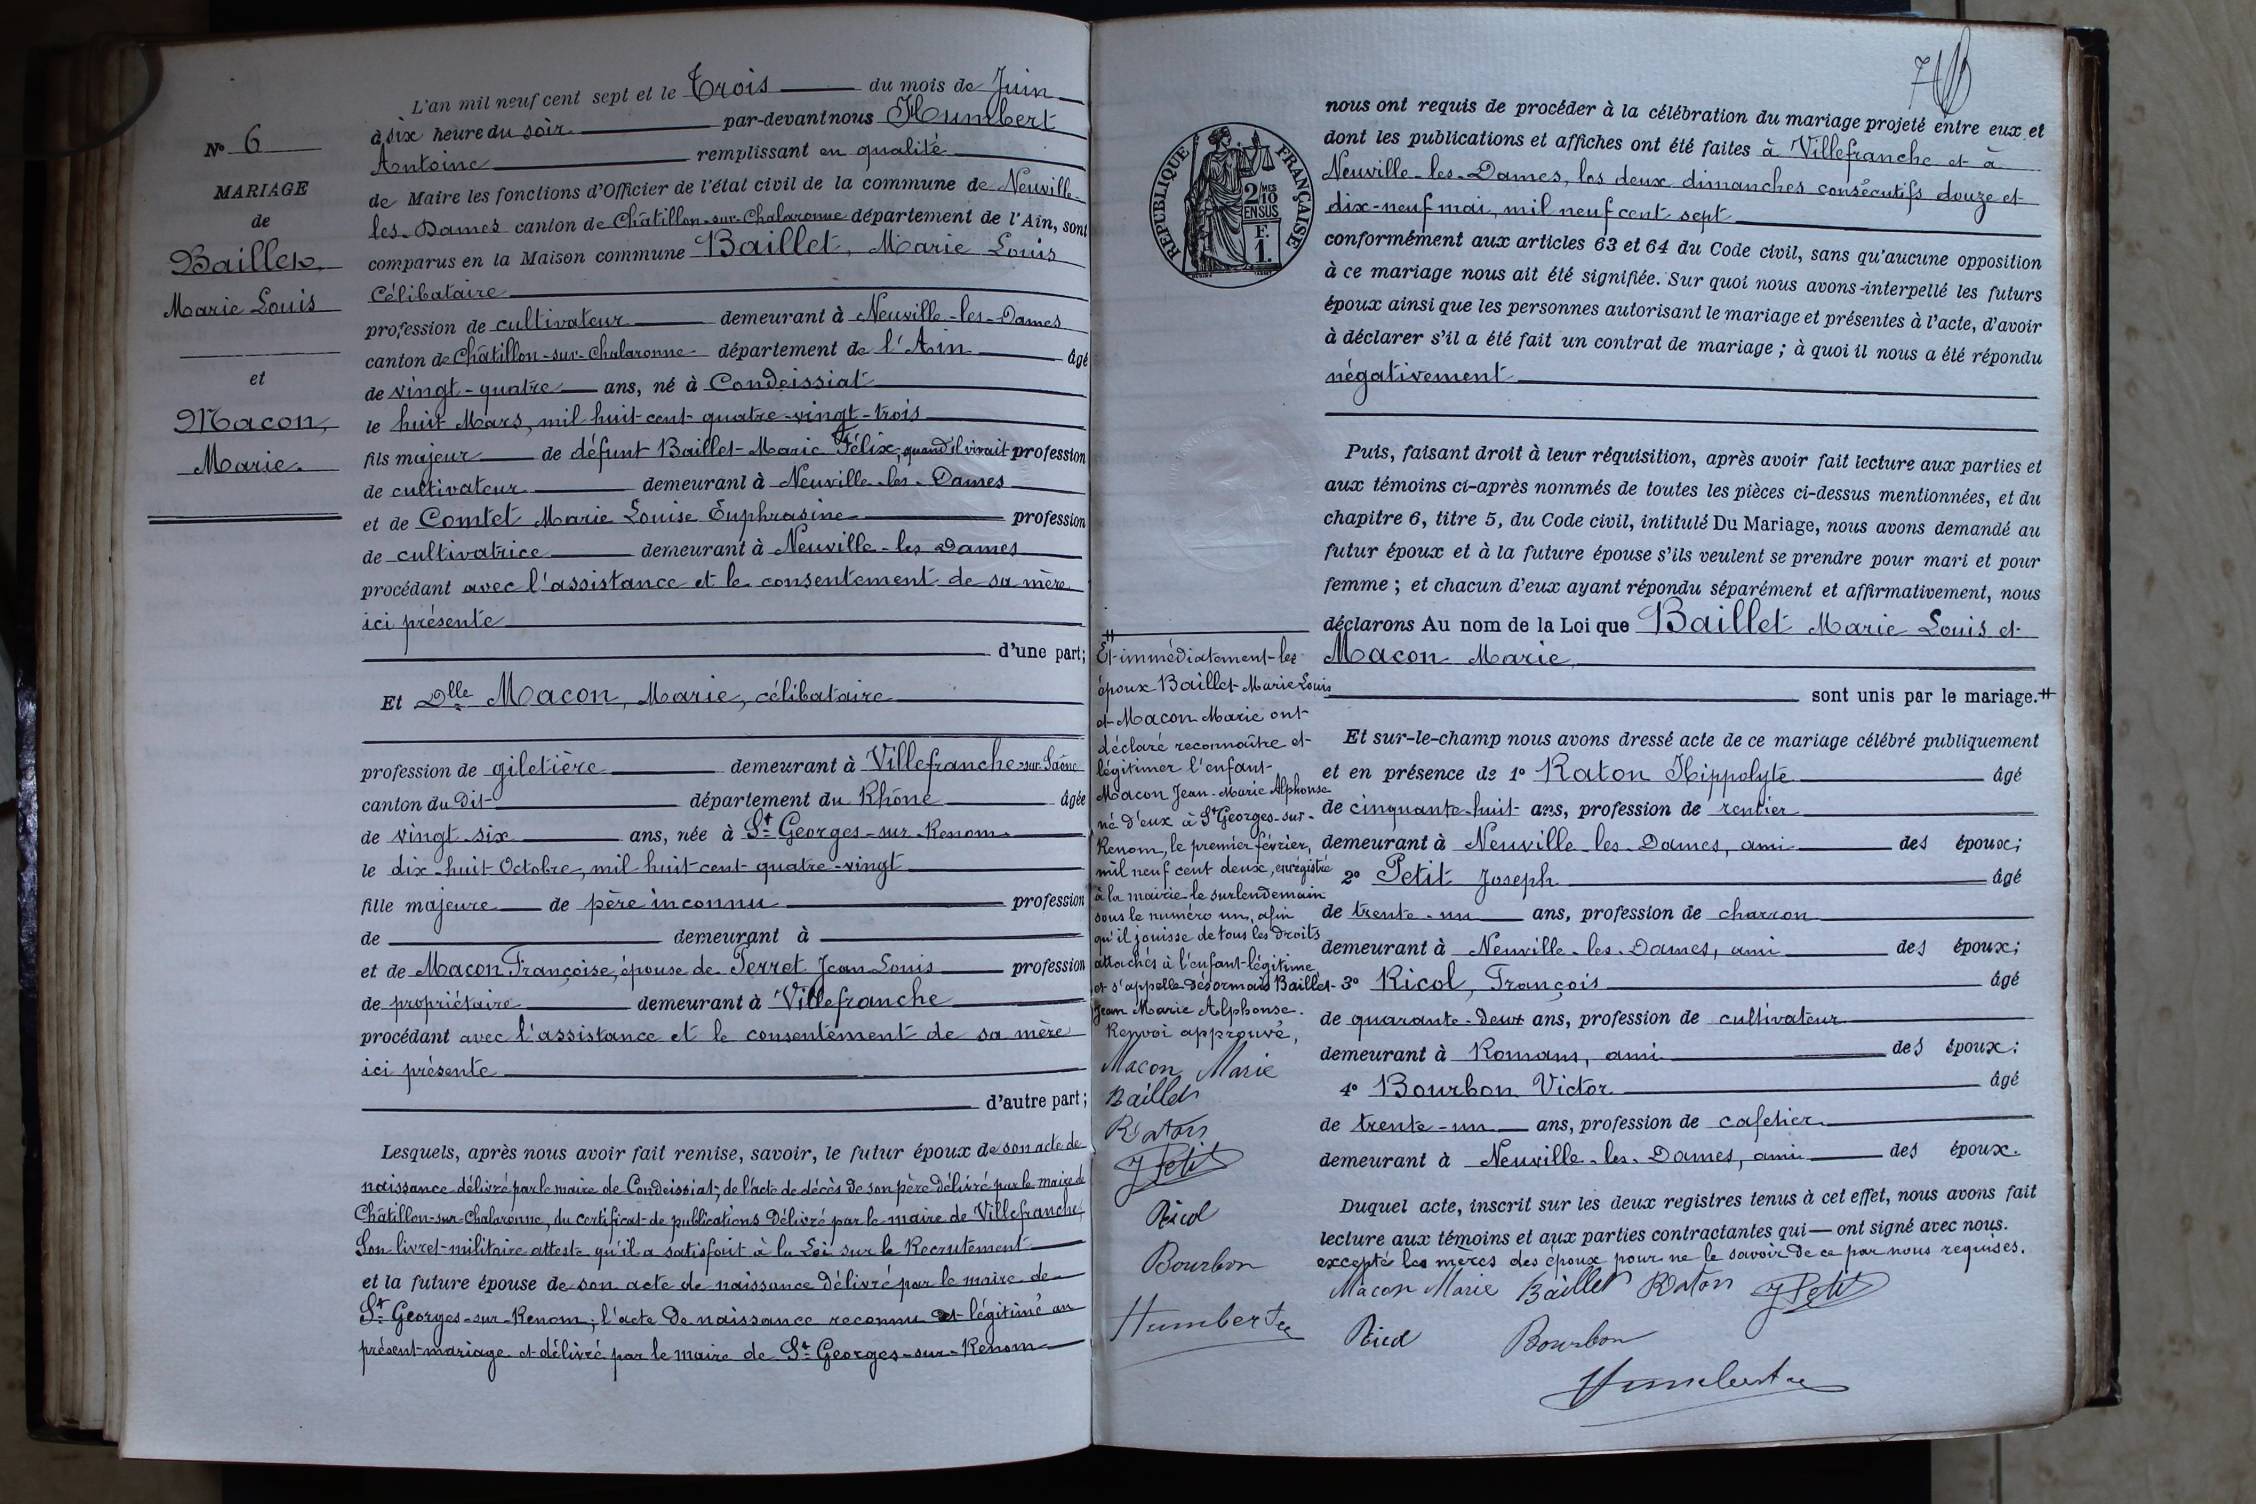 N° 6
MARIAGE
de
Baillet,
Marie Louis
et
Macon,
Marie.
L'an mil neuf cent sept et le Trois du mois de Juin
à six heure du soir par-devant nous Humbert
Antoine remplissant en qualité
de Maire les fonctions d'Officier de l'état civil de la commune de Neuville-
les-Dames canton de Châtillon-sur-Chalaronne département de l'Ain, sont
comparus en la Maison commune Baillet, Marie Louis
Célibataire
profession de cultivateur demeurant à Neuville-les-Dames
canton de Châtillon-sur-Chalaronne département de l'Ain âgé
de vingt-quatre ans, né à Condeissiat
le huit Mars, mil huit cent quatre-vingt-trois
fils majeur de défunt Baillet Marie Félix, quand il vivait profession
de cultivateur demeurant à Neuville-les-Dames
et de Comtet Marie Louise Euphrasine profession
de cultivatrice demeurant à Neuville-les Dames
procédant avec l'assistance et le consentement de sa mère
ici présente
d'une part;
Et Dlle Macon, Marie, célibataire
profession de giletière demeurant à Villefranche-sur-Saône
canton du dit département du Rhône âgée
de vingt-six ans, née à St Georges-sur-Renom
le dix-huit Octobre, mil huit cent quatre-vingt
fille majeure de père inconnu profession
de demeurant à
et de Macon Françoise, épouse de Perret Jean Louis profession
de propriétaire demeurant à Villefranche
procédant avec l'assistance et le consentement de sa mère
ici présente
d'autre part;
Lesquels, après nous avoir fait remise, savoir, le futur époux de son acte de
naissance délivré par le maire de Condeissiat; de l'acte de décès de son père délivré par le maire de
Châtillon-sur-Chalaronne, du certificat de publications délivré par le maire de Villefranche,
Son livret militaire atteste qu'il a satisfait à la Loi sur le Recrutement
et la future épouse de son acte de naissance délivré par le maire de
St Georges-sur-Renom; l'acte de naissance reconnu et légitimé au
présent mariage et délivré par le maire de St Georges-sur-Renom
RÉPUBLIQUE FRANÇAISE
2/10 MES
EN SUS
F.
1.
Et immédiatement les
époux Baillet Marie Louis
et Macon Marie ont
déclaré reconnaître et
légitimer l'enfant
Macon Jean-Marie Alphonse
né d'eux à St Georges-sur-
Renom, le premier février,
mil neuf cent deux, enregistré
à la mairie le surlendemain
sous le numéro un, afin
qu'il jouisse de tous les droits
attachés à l'enfant légitime
et s'appelle désormais Baillet
Jean Marie Alphonse.
Renvoi approuvé,
Macon Marie
Baillet
Raton
J Petit
Ricol
Bourbon
Humbert
nous ont requis de procéder à la célébration du mariage projeté entre eux et
dont les publications et affiches ont été faites à Villefranche et à
Neuville-les-Dames, les deux dimanches consécutifs douze et
dix-neuf mai, mil neuf cent sept
conformément aux articles 63 et 64 du Code civil, sans qu'aucune opposition
à ce mariage nous ait été signifiée. Sur quoi nous avons interpellé les futurs
époux ainsi que les personnes autorisant le mariage et présentes à l'acte, d'avoir
à déclarer s'il a été fait un contrat de mariage; à quoi il nous a été répondu
négativement
Puis, faisant droit à leur réquisition, après avoir fait lecture aux parties et
aux témoins ci-après nommés de toutes les pièces ci-dessus mentionnées, et du
chapitre 6, titre 5, du Code civil, intitulé Du Mariage, nous avons demandé au
futur époux et à la future épouse s'ils veulent se prendre pour mari et pour
femme; et chacun d'eux ayant répondu séparément et affirmativement, nous
déclarons Au nom de la Loi que Baillet Marie Louis et
Macon Marie,
sont unis par le mariage.
Et sur-le-champ nous avons dressé acte de ce mariage célébré publiquement
et en présence de 1° Raton Hippolyte âgé
de cinquante-huit ans, profession de rentier
demeurant à Neuville-les-Dames, ami des époux;
2° Petit Joseph âgé
de trente-un ans, profession de charron
demeurant à Neuville-les-Dames, ami des époux;
3° Ricol, François âgé
de quarante-deux ans, profession de cultivateur
demeurant à Romans, ami des époux:
4° Bourbon Victor âgé
de trente-un ans, profession de cafetier
demeurant à Neuville-les-Dames, ami des époux.
Duquel acte, inscrit sur les deux registres tenus à cet effet, nous avons fait
lecture aux témoins et aux parties contractantes qui ont signé avec nous.
excepté les mères des époux pour ne le savoir de ce par nous requises.
Macon Marie Baillet Raton J Petit
Ricol Bourbon
Humbert